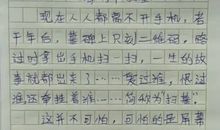 现在人人都离不开手机，若
干年后，墓碑上只刻二维码，路
过时拿出手机扫一扫，一生的故
事就都出来了……爱过谁，恨过
谁，还牵挂着谁……简称为“扫墓”
这并不可怕，可怕的是屏幕